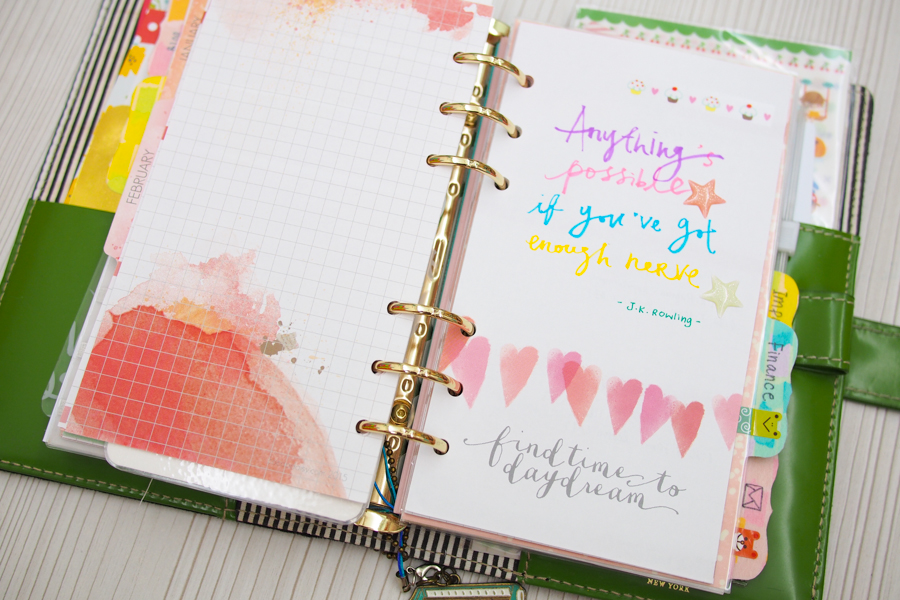 FEBRUARY
Anything's
possible
if you've got
enough nerve
- J.K. Rowling -
find time to
daydream
Imp
Finance
NEW YORK